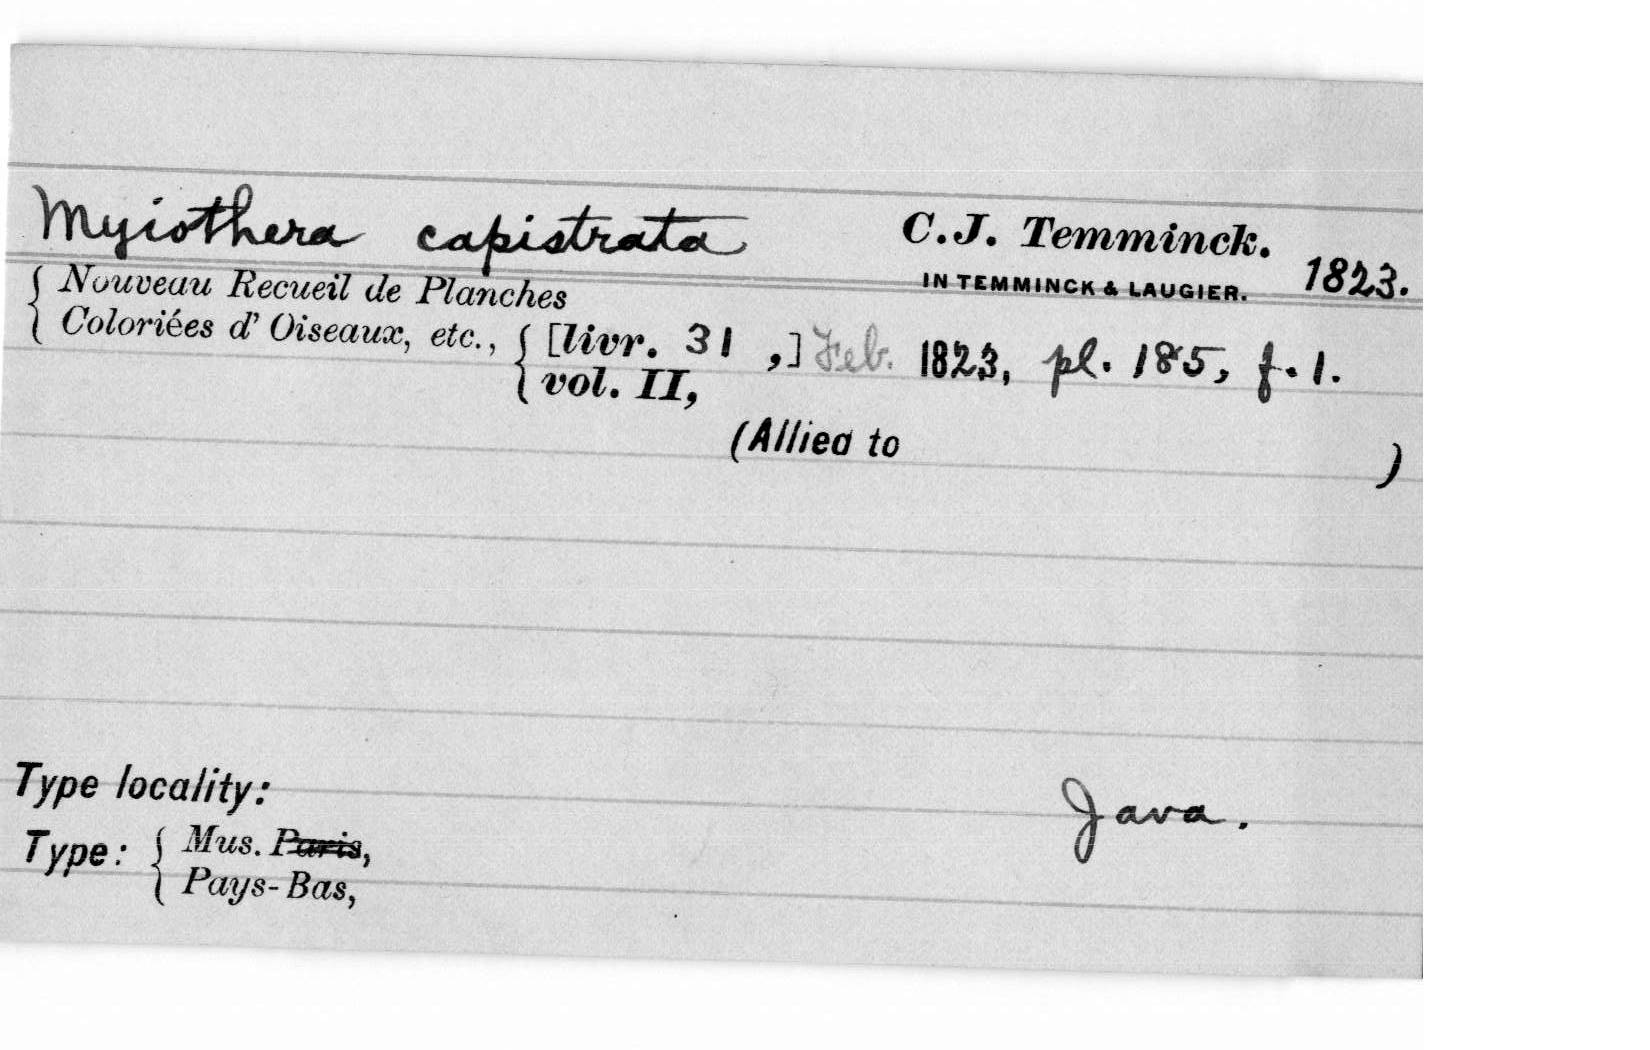 Myiothera capistrata C.J. Temminck.
IN TEMMINCK & LAUGIER. 1823.
Nouveau Recueil de Planches
Coloriées d' Oiseaux, etc., [livr. 31 ,] Feb. 1823, pl. 185, f. 1.
vol. II,
(Allied to )
Type locality: Java.
Type: Mus. Paris,
Pays-Bas,